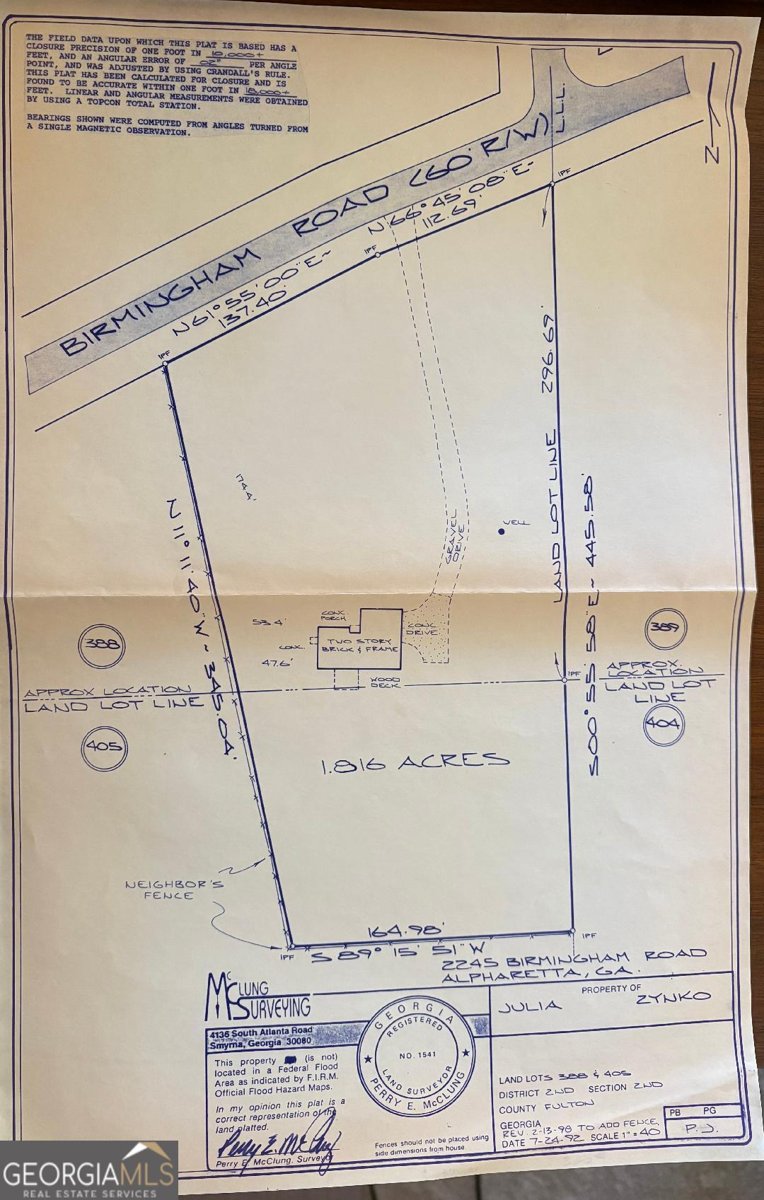 THE FIELD DATA UPON WHICH THIS PLAT IS BASED HAS A
CLOSURE PRECISION OF ONE FOOT IN 10,000+
FEET, AND AN ANGULAR ERROR OF 02" PER ANGLE
POINT, AND WAS ADJUSTED BY USING CRANDALL'S RULE.
THIS PLAT HAS BEEN CALCULATED FOR CLOSURE AND IS
FOUND TO BE ACCURATE WITHIN ONE FOOT IN
FEET. LINEAR AND ANGULAR MEASUREMENTS WERE OBTAINED
BY USING A TOPCON TOTAL STATION.
BEARINGS SHOWN WERE COMPUTED FROM ANGLES TURNED FROM
A SINGLE MAGNETIC OBSERVATION.
L.L.L.
N
BIRMINGHAM ROAD (60' R/W)
N 66° 45' 08" E ~
112.69'
IPF
IPF
N 61° 55' 00" E ~
137.40'
IPF
LAND LOT LINE 296.69'
S 00° 55' 58" E ~ 445.58'
N 11° 11' 40" W ~ 345.04'
WELL
GRAVEL
DRIVE
53.4'
CONC.
PORCH
CONC.
DRIVE
TWO STORY
BRICK & FRAME
CONC.
47.6'
WOOD
DECK
388
389
IPF
APPROX LOCATION
LAND LOT LINE
APPROX.
LOCATION
LAND LOT
LINE
405
404
1.816 ACRES
NEIGHBOR'S
FENCE
164.98'
IPF
IPF
S 89° 15' 51" W
2245 BIRMINGHAM ROAD
ALPHARETTA, GA.
McCLUNG
SURVEYING
4136 South Atlanta Road
Smyrna, Georgia 30080
This property (is not)
located in a Federal Flood
Area as indicated by F.I.R.M.
Official Flood Hazard Maps.
In my opinion this plat is a
correct representation of the
land platted.
Perry E. McClung
Perry E. McClung, Surveyor
GEORGIA
REGISTERED
NO. 1541
LAND SURVEYOR
PERRY E. McCLUNG
Fences should not be placed using
side dimensions from house
PROPERTY OF
JULIA ZYNKO
LAND LOTS 388 & 405
DISTRICT 2ND SECTION 2ND
COUNTY FULTON
GEORGIA
REV. 2-13-98 TO ADD FENCE,
DATE 7-24-92 SCALE 1"=40
PB PG
P.J.
GEORGIAMLS
REAL ESTATE SERVICES